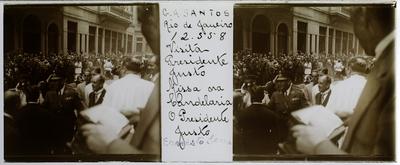 C.A.SANTOS
Rio de Janeiro
12.558
Visita
Presidente
Justo
Missa na
Candelaria
O Presidente
Justo